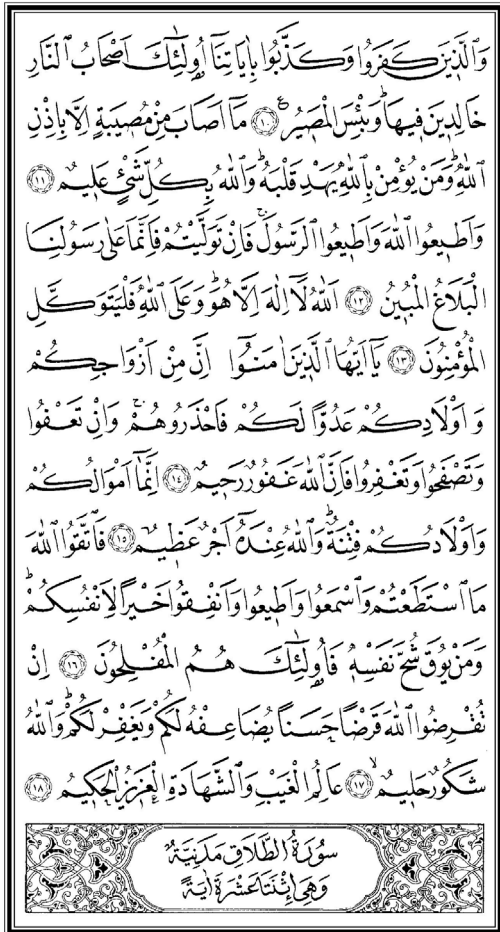 وَالَّذِينَ كَفَرُوا وَكَذَّبُوا بِاٰيَاتِنَٓا اُو۬لٰٓئِكَ اَصْحَابُ النَّارِ
خَالِدِينَ فِيهَاۜ وَبِئْسَ الْمَصِيرُ۟ ﴿١٠﴾ مَٓا اَصَابَ مِنْ مُصِيبَةٍ اِلَّا بِاِذْنِ
اللّٰهِۜ وَمَنْ يُؤْمِنْ بِاللّٰهِ يَهْدِ قَلْبَهُۜ وَاللّٰهُ بِكُلِّ شَيْءٍ عَلِيمٌ ﴿١١﴾
وَاَطِيعُوا اللّٰهَ وَاَطِيعُوا الرَّسُولَۚ فَاِنْ تَوَلَّيْتُمْ فَاِنَّمَا عَلٰى رَسُولِنَا
الْبَلَاغُ الْمُبِينُ ﴿١٢﴾ اَللّٰهُ لَٓا اِلٰهَ اِلَّا هُوَۜ وَعَلَى اللّٰهِ فَلْيَتَوَكَّلِ
الْمُؤْمِنُونَ ﴿١٣﴾ يَٓا اَيُّهَا الَّذِينَ اٰمَنُٓوا اِنَّ مِنْ اَزْوَاجِكُمْ
وَاَوْلَادِكُمْ عَدُوًّا لَكُمْ فَاحْذَرُوهُمْۚ وَاِنْ تَعْفُوا
وَتَصْفَحُوا وَتَغْفِرُوا فَاِنَّ اللّٰهَ غَفُورٌ رَحِيمٌ ﴿١٤﴾ اِنَّمَٓا اَمْوَالُكُمْ
وَاَوْلَادُكُمْ فِتْنَةٌۜ وَاللّٰهُ عِنْدَهُٓ اَجْرٌ عَظِيمٌ ﴿١٥﴾ فَاتَّقُوا اللّٰهَ
مَا اسْتَطَعْتُمْ وَاسْمَعُوا وَاَطِيعُوا وَاَنْفِقُوا خَيْرًا لِاَنْفُسِكُمْۜ
وَمَنْ يُوقَ شُحَّ نَفْسِهِ فَاُو۬لٰٓئِكَ هُمُ الْمُفْلِحُونَ ﴿١٦﴾ اِنْ
تُقْرِضُوا اللّٰهَ قَرْضًا حَسَنًا يُضَاعِفْهُ لَكُمْ وَيَغْفِرْ لَكُمْۜ وَاللّٰهُ
شَكُورٌ حَلِيمٌۙ ﴿١٧﴾ عَالِمُ الْغَيْبِ وَالشَّهَادَةِ الْعَزِيزُ الْحَكِيمُ ﴿١٨﴾
سُورَةُ الطَّلَاقِ مَدَنِيَّةٌ
وَهِيَ اِثْنَتَا عَشْرَةَ اٰيَةً